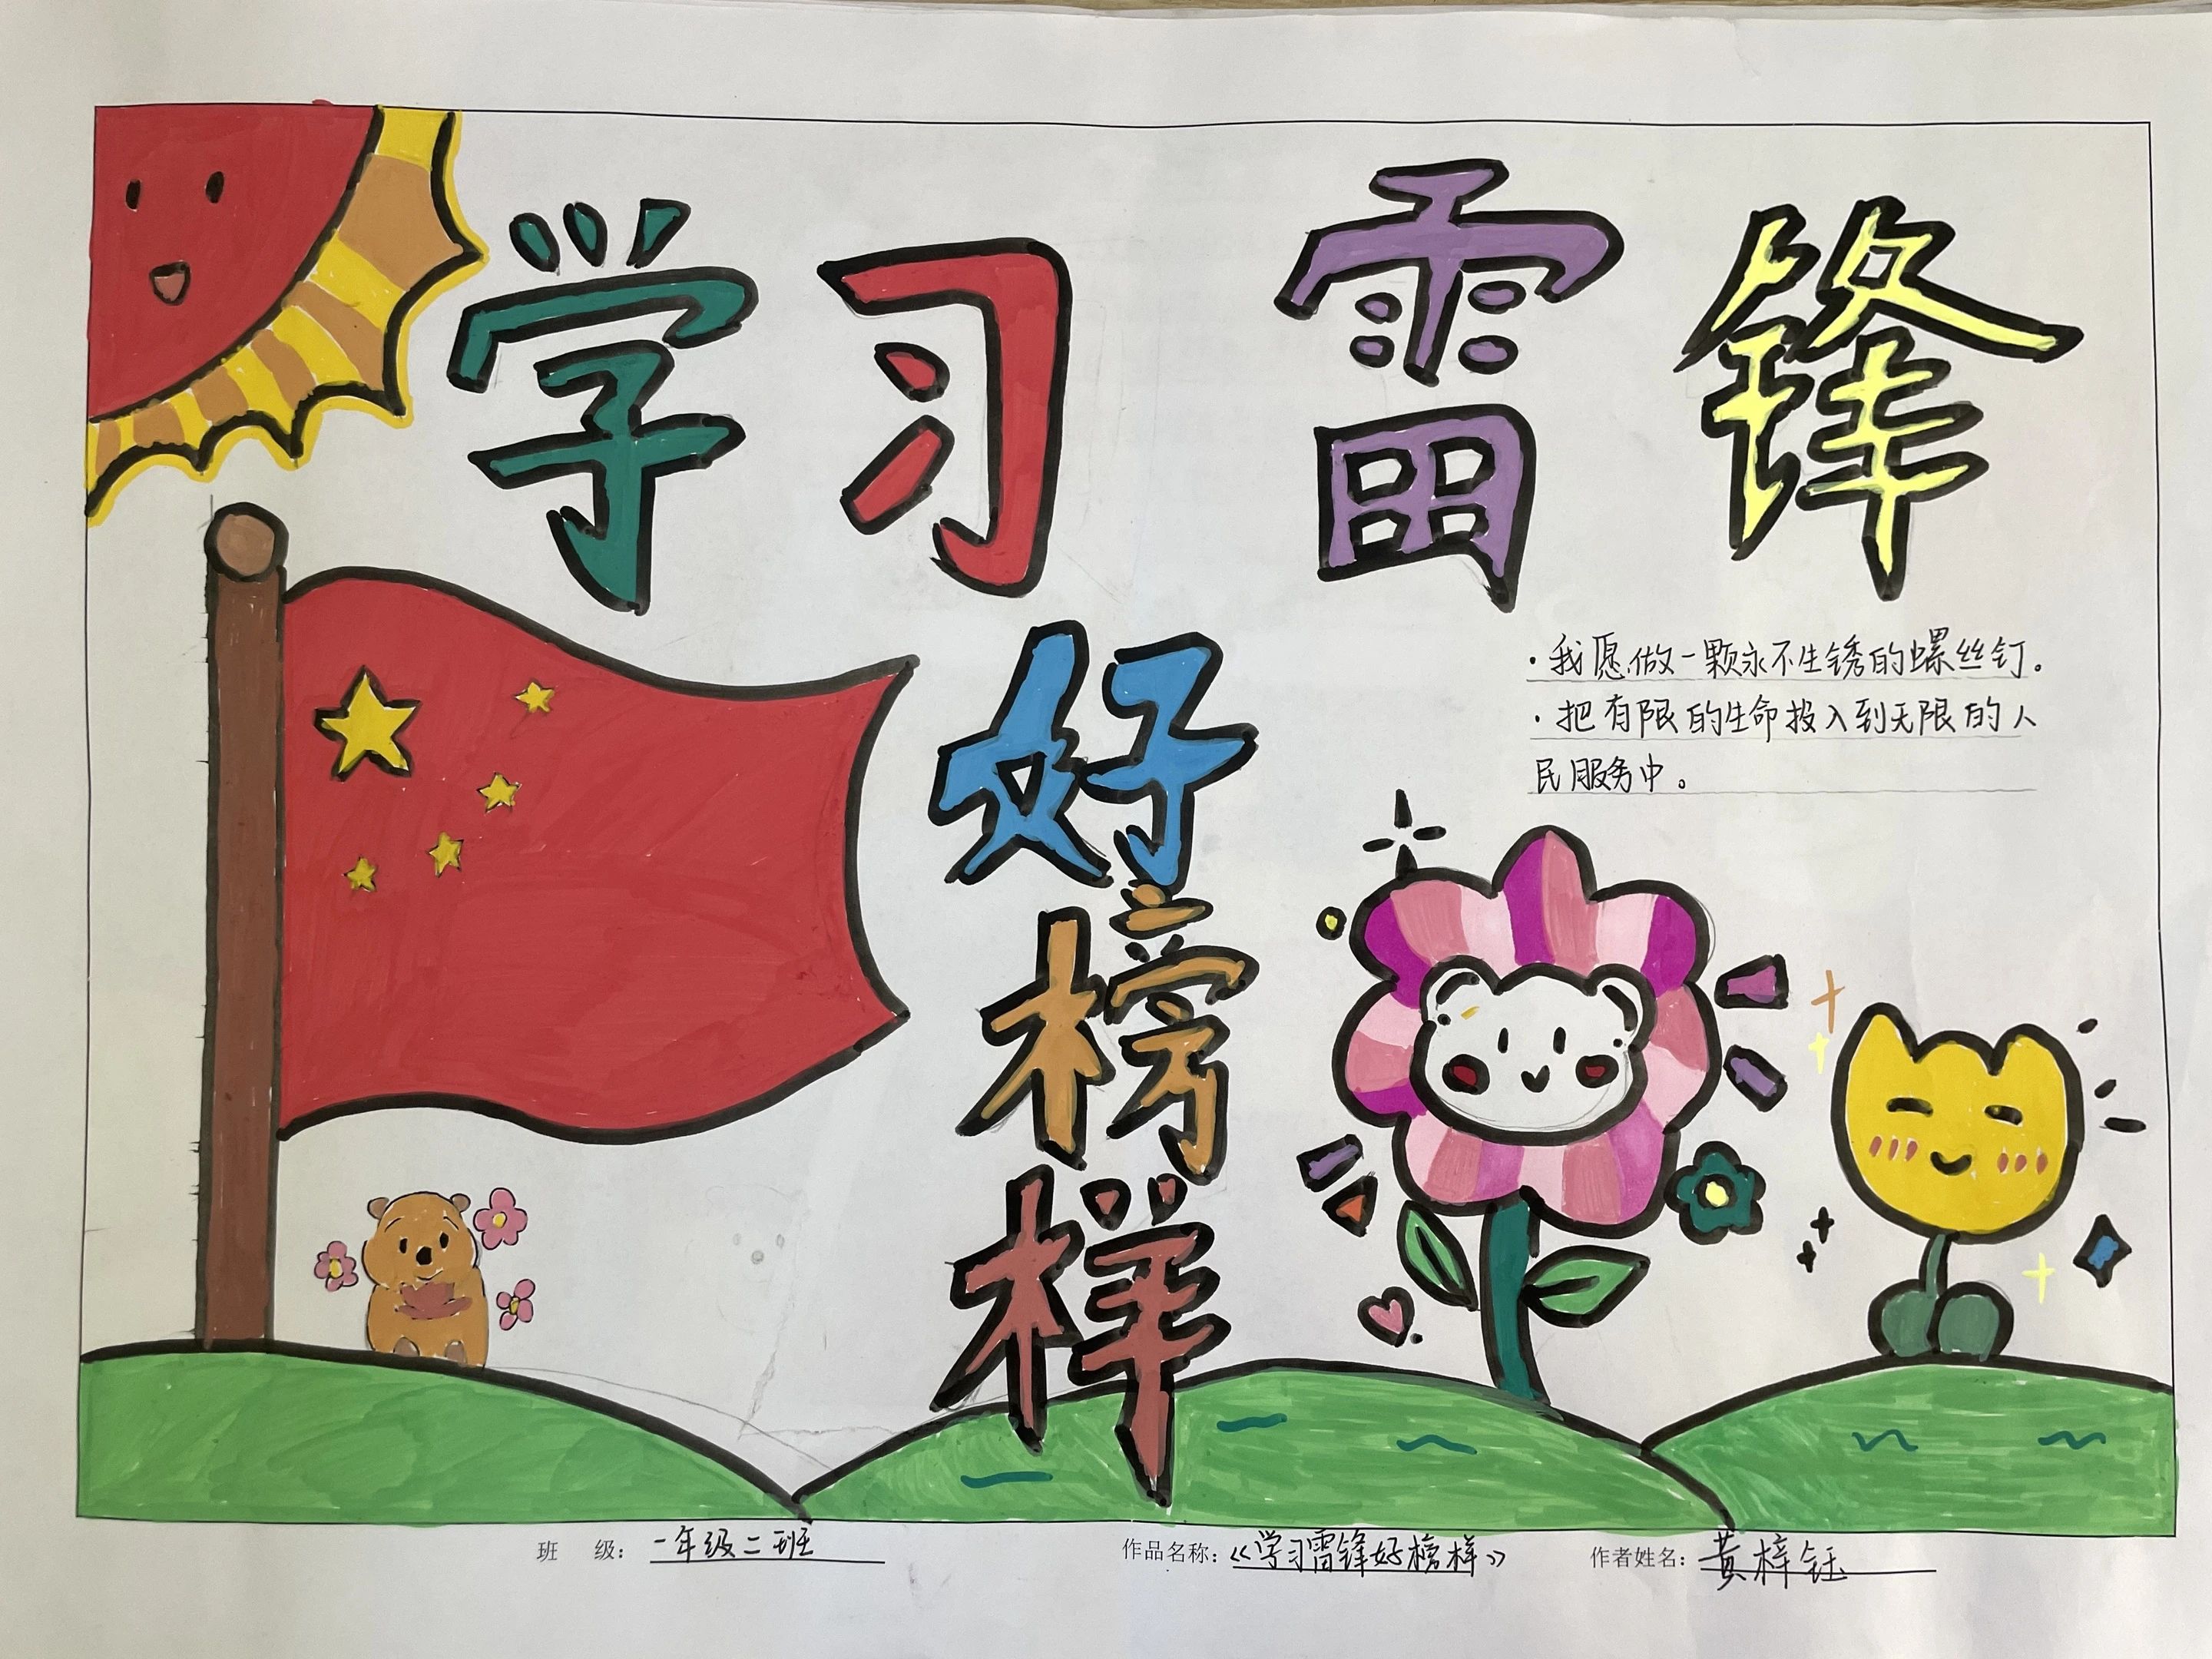 学习雷锋
好
榜
样
·我愿做一颗永不生锈的螺丝钉。
·把有限的生命投入到无限的人
民服务中。
班 级：一年级二班 作品名称：《学习雷锋好榜样》 作者姓名：黄梓钰